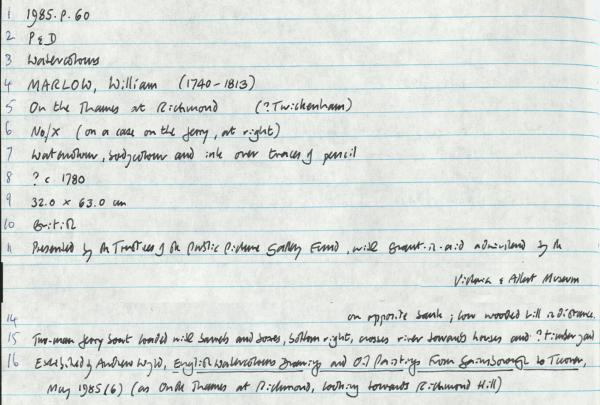 1 1985.P.60
2 P&D
3 Watercolours
4 MARLOW, William (1740-1813)
5 On the Thames at Richmond (?Twickenham)
6 No/X (on a case on the ferry, at right)
7 Watercolour, bodycolour and ink over traces of pencil
8 ? c 1780
9 32.0 x 63.0 cm
10 British
11 Presented by the Trustees of the Public Picture Gallery Fund, with grant-in-aid administered by the
Victoria & Albert Museum
14 on opposite bank; low wooded hill in distance.
15 Two-man ferry boat loaded with barrels and boxes, bottom right, crosses river towards houses and ?timber yard
16 Exhibited by Andrew Wyld, English Watercolours Drawings and Oil Paintings From Gainsborough to Turner,
May 1985 (6) (as On the Thames at Richmond, looking towards Richmond Hill)